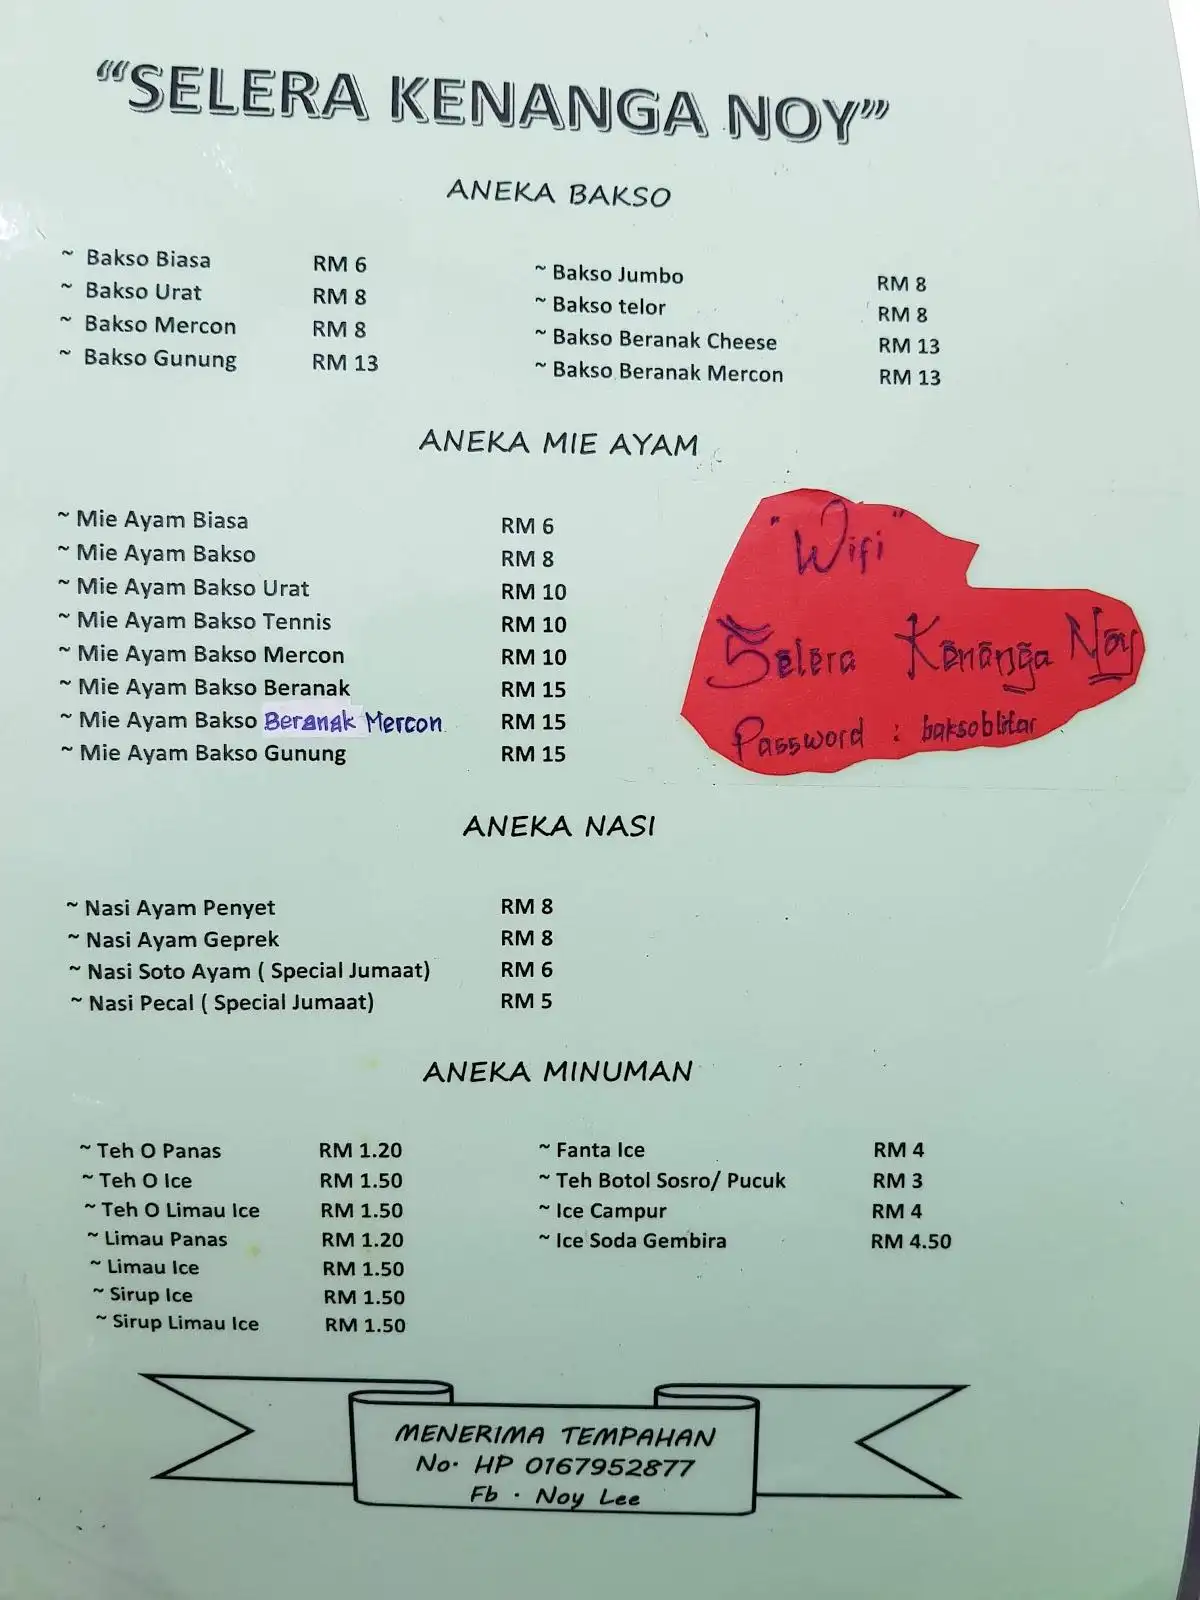 "‘SELERA KENANGA NOY”
ANEKA BAKSO
~ Bakso Biasa RM 6
~ Bakso Urat RM 8
~ Bakso Mercon RM 8
~ Bakso Gunung RM 13
~ Bakso Jumbo RM 8
~ Bakso telor RM 8
~ Bakso Beranak Cheese RM 13
~ Bakso Beranak Mercon RM 13
ANEKA MIE AYAM
~ Mie Ayam Biasa RM 6
~ Mie Ayam Bakso RM 8
~ Mie Ayam Bakso Urat RM 10
~ Mie Ayam Bakso Tennis RM 10
~ Mie Ayam Bakso Mercon RM 10
~ Mie Ayam Bakso Beranak RM 15
~ Mie Ayam Bakso Beranak Mercon RM 15
~ Mie Ayam Bakso Gunung RM 15
"Wifi"
Selera Kenanga Noy
Password : baksoblitar
ANEKA NASI
~ Nasi Ayam Penyet RM 8
~ Nasi Ayam Geprek RM 8
~ Nasi Soto Ayam ( Special Jumaat) RM 6
~ Nasi Pecal ( Special Jumaat) RM 5
ANEKA MINUMAN
~ Teh O Panas RM 1.20
~ Teh O Ice RM 1.50
~ Teh O Limau Ice RM 1.50
~ Limau Panas RM 1.20
~ Limau Ice RM 1.50
~ Sirup Ice RM 1.50
~ Sirup Limau Ice RM 1.50
~ Fanta Ice RM 4
~ Teh Botol Sosro/ Pucuk RM 3
~ Ice Campur RM 4
~ Ice Soda Gembira RM 4.50
MENERIMA TEMPAHAN
No. HP 0167952877
Fb . Noy Lee